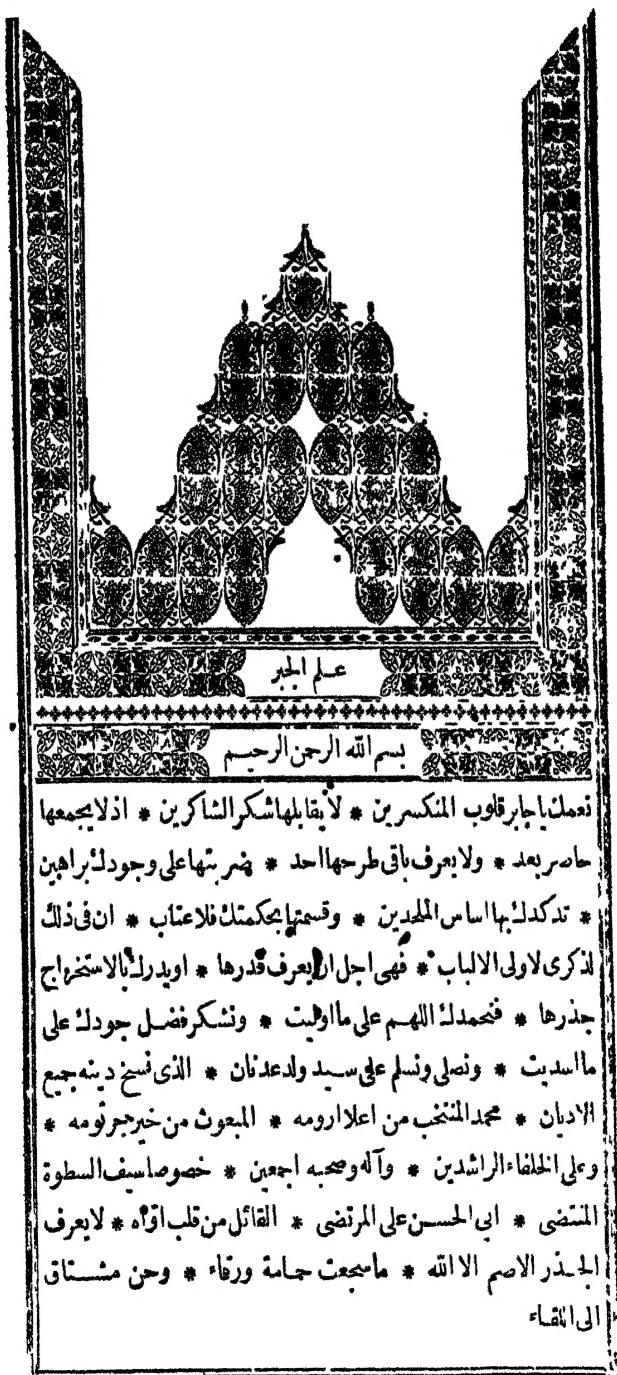 علم الجبر
بسم الله الرحمن الرحيم
نعمك يا جابر قلوب المنكسرين * لا يقابلها شكر الشاكرين * اذ لا يجمعها
حاصر بعد * ولا يعرف باقى طرحها احد * ضربتها على وجودك براهين
* تدكدك بها اساس الملحدين * وقسمتها بحكمتك فلا عتاب * ان فى ذلك
لذكرى لاولى الالباب * فهى اجل ان يعرف قدرها * او يدرك بالاستخراج
جذرها * فنحمدك اللهم على ما اوليت * ونشكر فضل جودك على
ما اسديت * ونصلى ونسلم على سيد ولد عدنان * الذى نسخ دينه جميع
الاديان * محمد المنتخب من اعلا ارومه * المبعوث من خير جرثومه *
وعلى الخلفاء الراشدين * وآله وصحبه اجمعين * خصوصا سيف السطوة
المنتضى * ابى الحسن على المرتضى * القائل من قلب اوّاه * لا يعرف
الجذر الاصم الا الله * ما سجعت حمامة ورقاء * وحن مشتاق
الى اللقاء